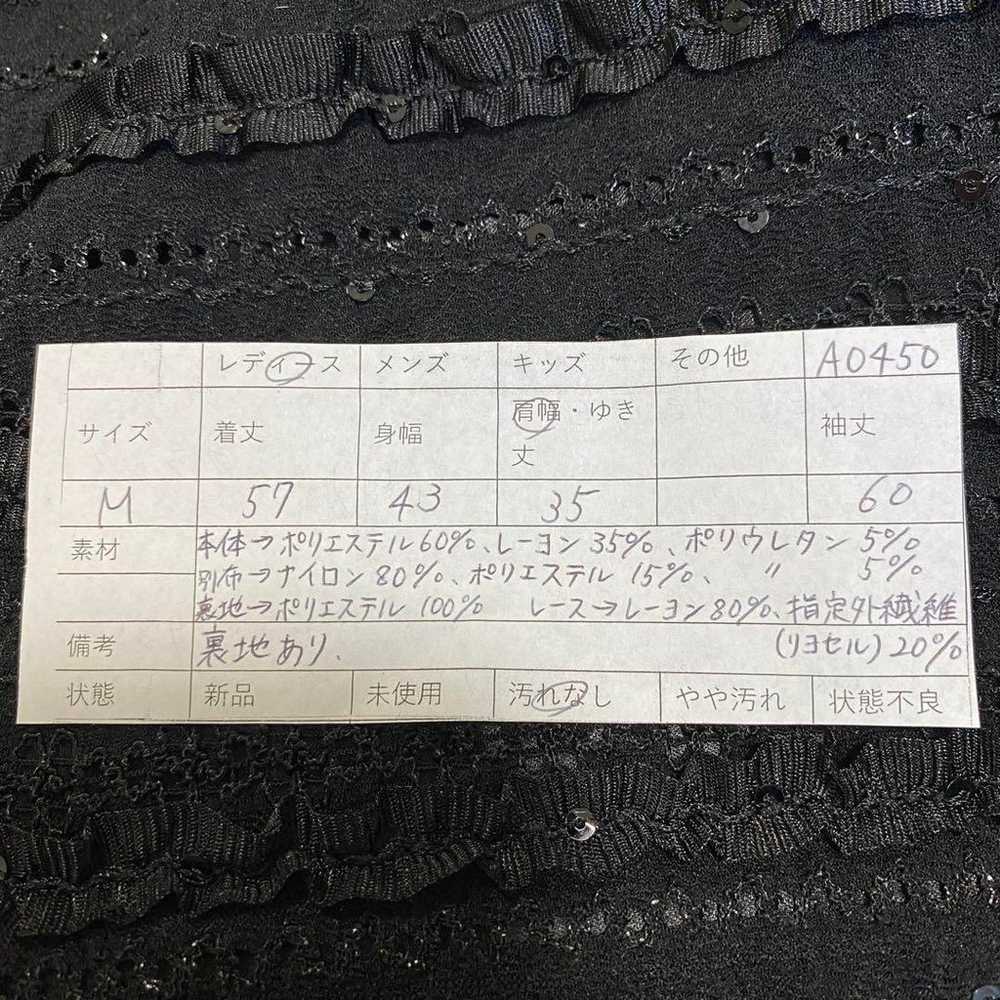 レディース メンズ キッズ その他 A0450
サイズ 着丈 身幅 肩幅・ゆき丈 袖丈
M 57 43 35 60
素材 本体→ポリエステル60%、レーヨン35%、ポリウレタン 5%
別布→ナイロン80%、ポリエステル15%、 〃 5%
裏地→ポリエステル100% レース→レーヨン80%、指定外繊維
備考 裏地あり. (リヨセル)20%
状態 新品 未使用 汚れなし やや汚れ 状態不良